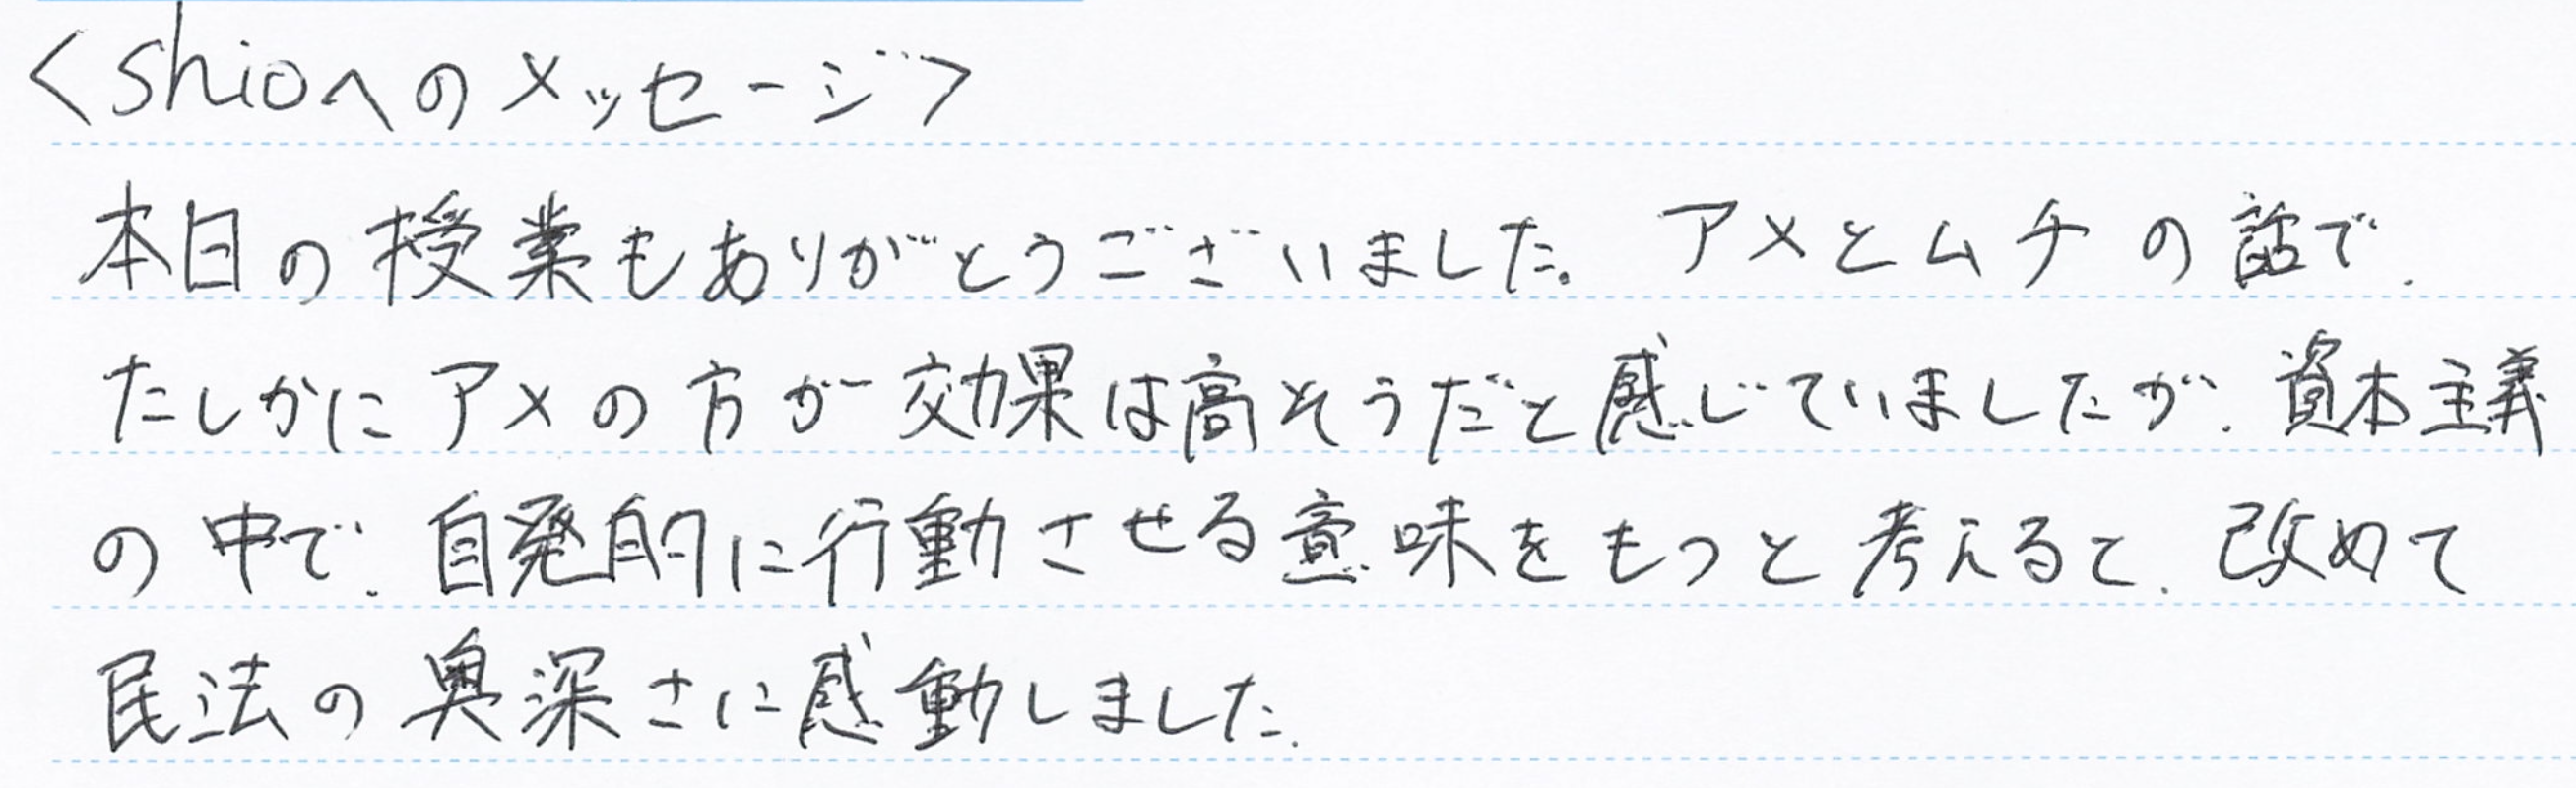 <shioへのメッセージ>
本日の授業もありがとうございました。アメとムチの話で、
たしかにアメの方が効果は高そうだと感じていましたが、資本主義
の中で、自発的に行動させる意味をもっと考えると、改めて
民法の奥深さに感動しました。